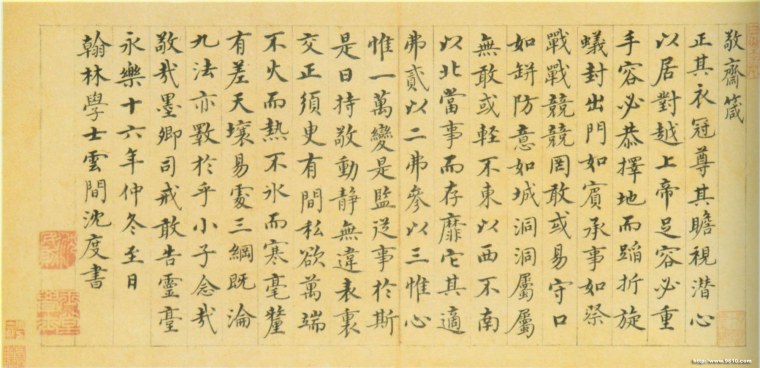 敬齋箴
正其衣冠尊其瞻視潛心
以居對越上帝足容必重
手容必恭擇地而蹈折旋
蟻封出門如賓承事如祭
戰戰兢兢罔敢或易守口
如缾防意如城洞洞屬屬
無敢或輕不東以西不南
以北當事而存靡它其適
弗貳以二弗參以三惟心
惟一萬變是監從事於斯
是曰持敬動靜無違表裏
交正須臾有間私欲萬端
不火而熱不冰而寒毫釐
有差天壤易處三綱既淪
九法亦斁於乎小子念哉
敬哉墨卿司戒敢告靈臺
永樂十六年仲冬至日
翰林學士雲間沈度書
http://www.9610.com